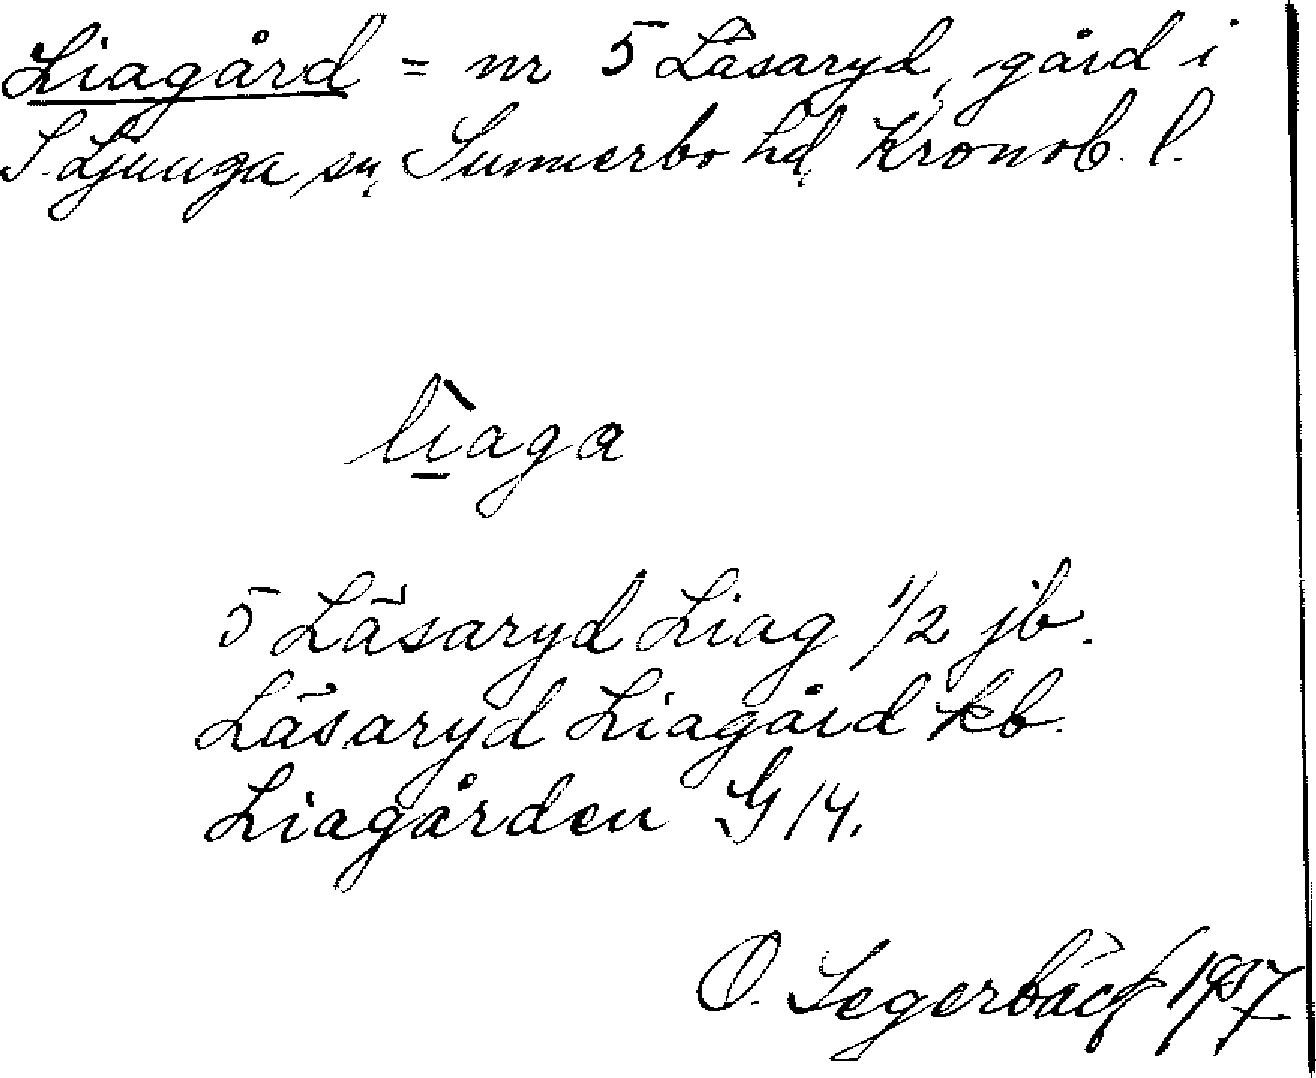 Liagård = nr 5 Läsaryd, gård i
S. Ljunga sn, Sunnerbo hd, Kronob. l.
liaga
5 Läsaryd Liag 1/2 jb.
Läsaryd Liagård kb.
Liagården G 14.
O. Segerbäck 1957